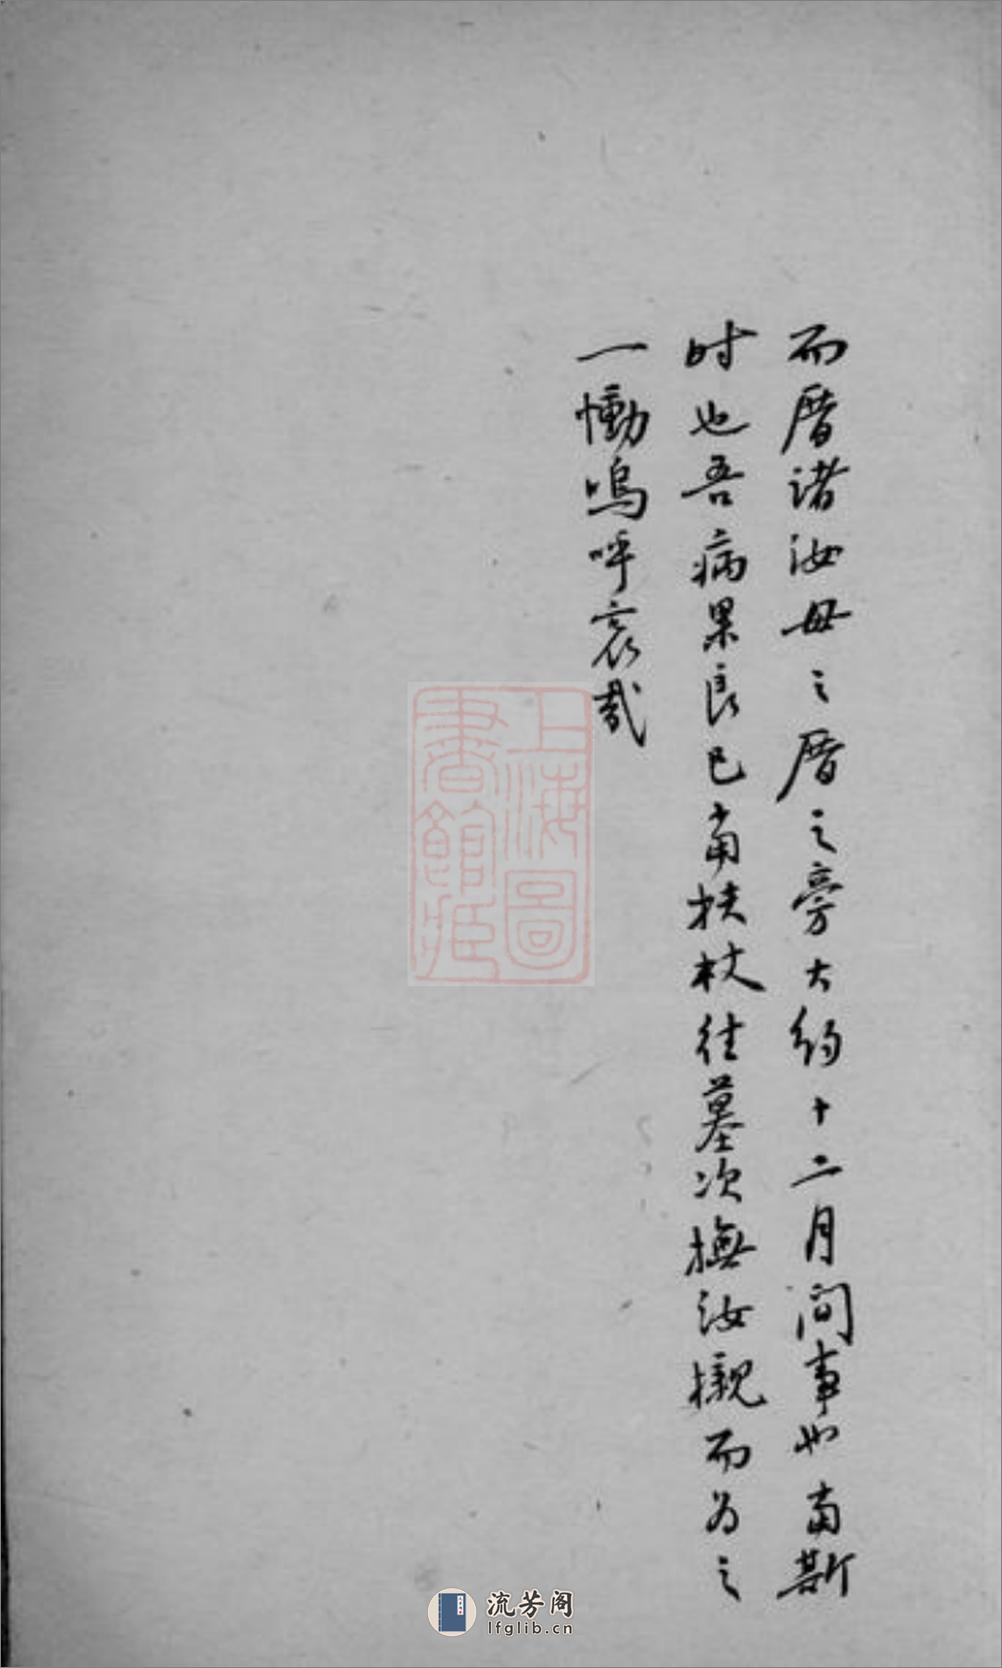 而厝諸汝母之厝之旁大約十二月間事也當斯
时也吾病果良已當扶杖往墓次撫汝櫬而为之
一慟嗚呼哀哉
上海圖
書館藏
流芳阁
lfglib.cn